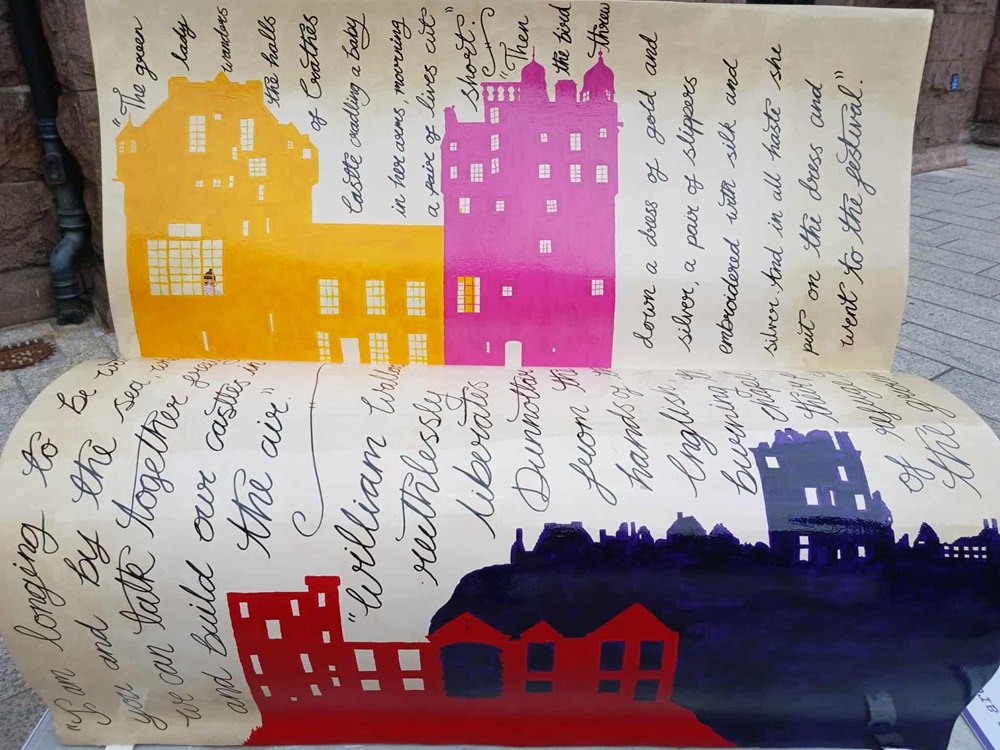 “The green
lady
wanders
the halls
of Crathes
Castle cradling a baby
in her arms, mourning
a pair of lives cut
short.”
“Then
the bird
threw
down a dress of gold and
silver, a pair of slippers
embroidered with silk and
silver. And in all haste she
put on the dress and
went to the festival.”
“I am longing to be
you and by the sea,
we can talk together
and build our castles in
the air.”
“William
ruthlessly
liberates
Dunnottar
from the
hands of
English,
burning
of
the